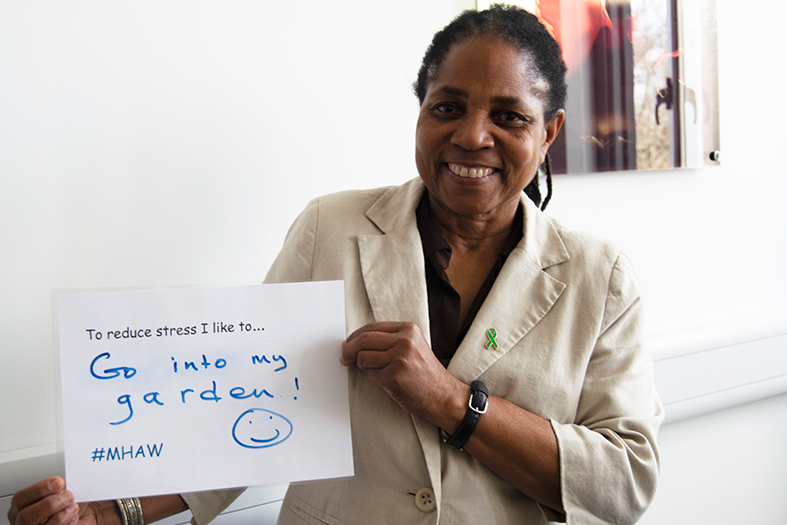 To reduce stress I like to...
Go into my
garden!
#MHAW